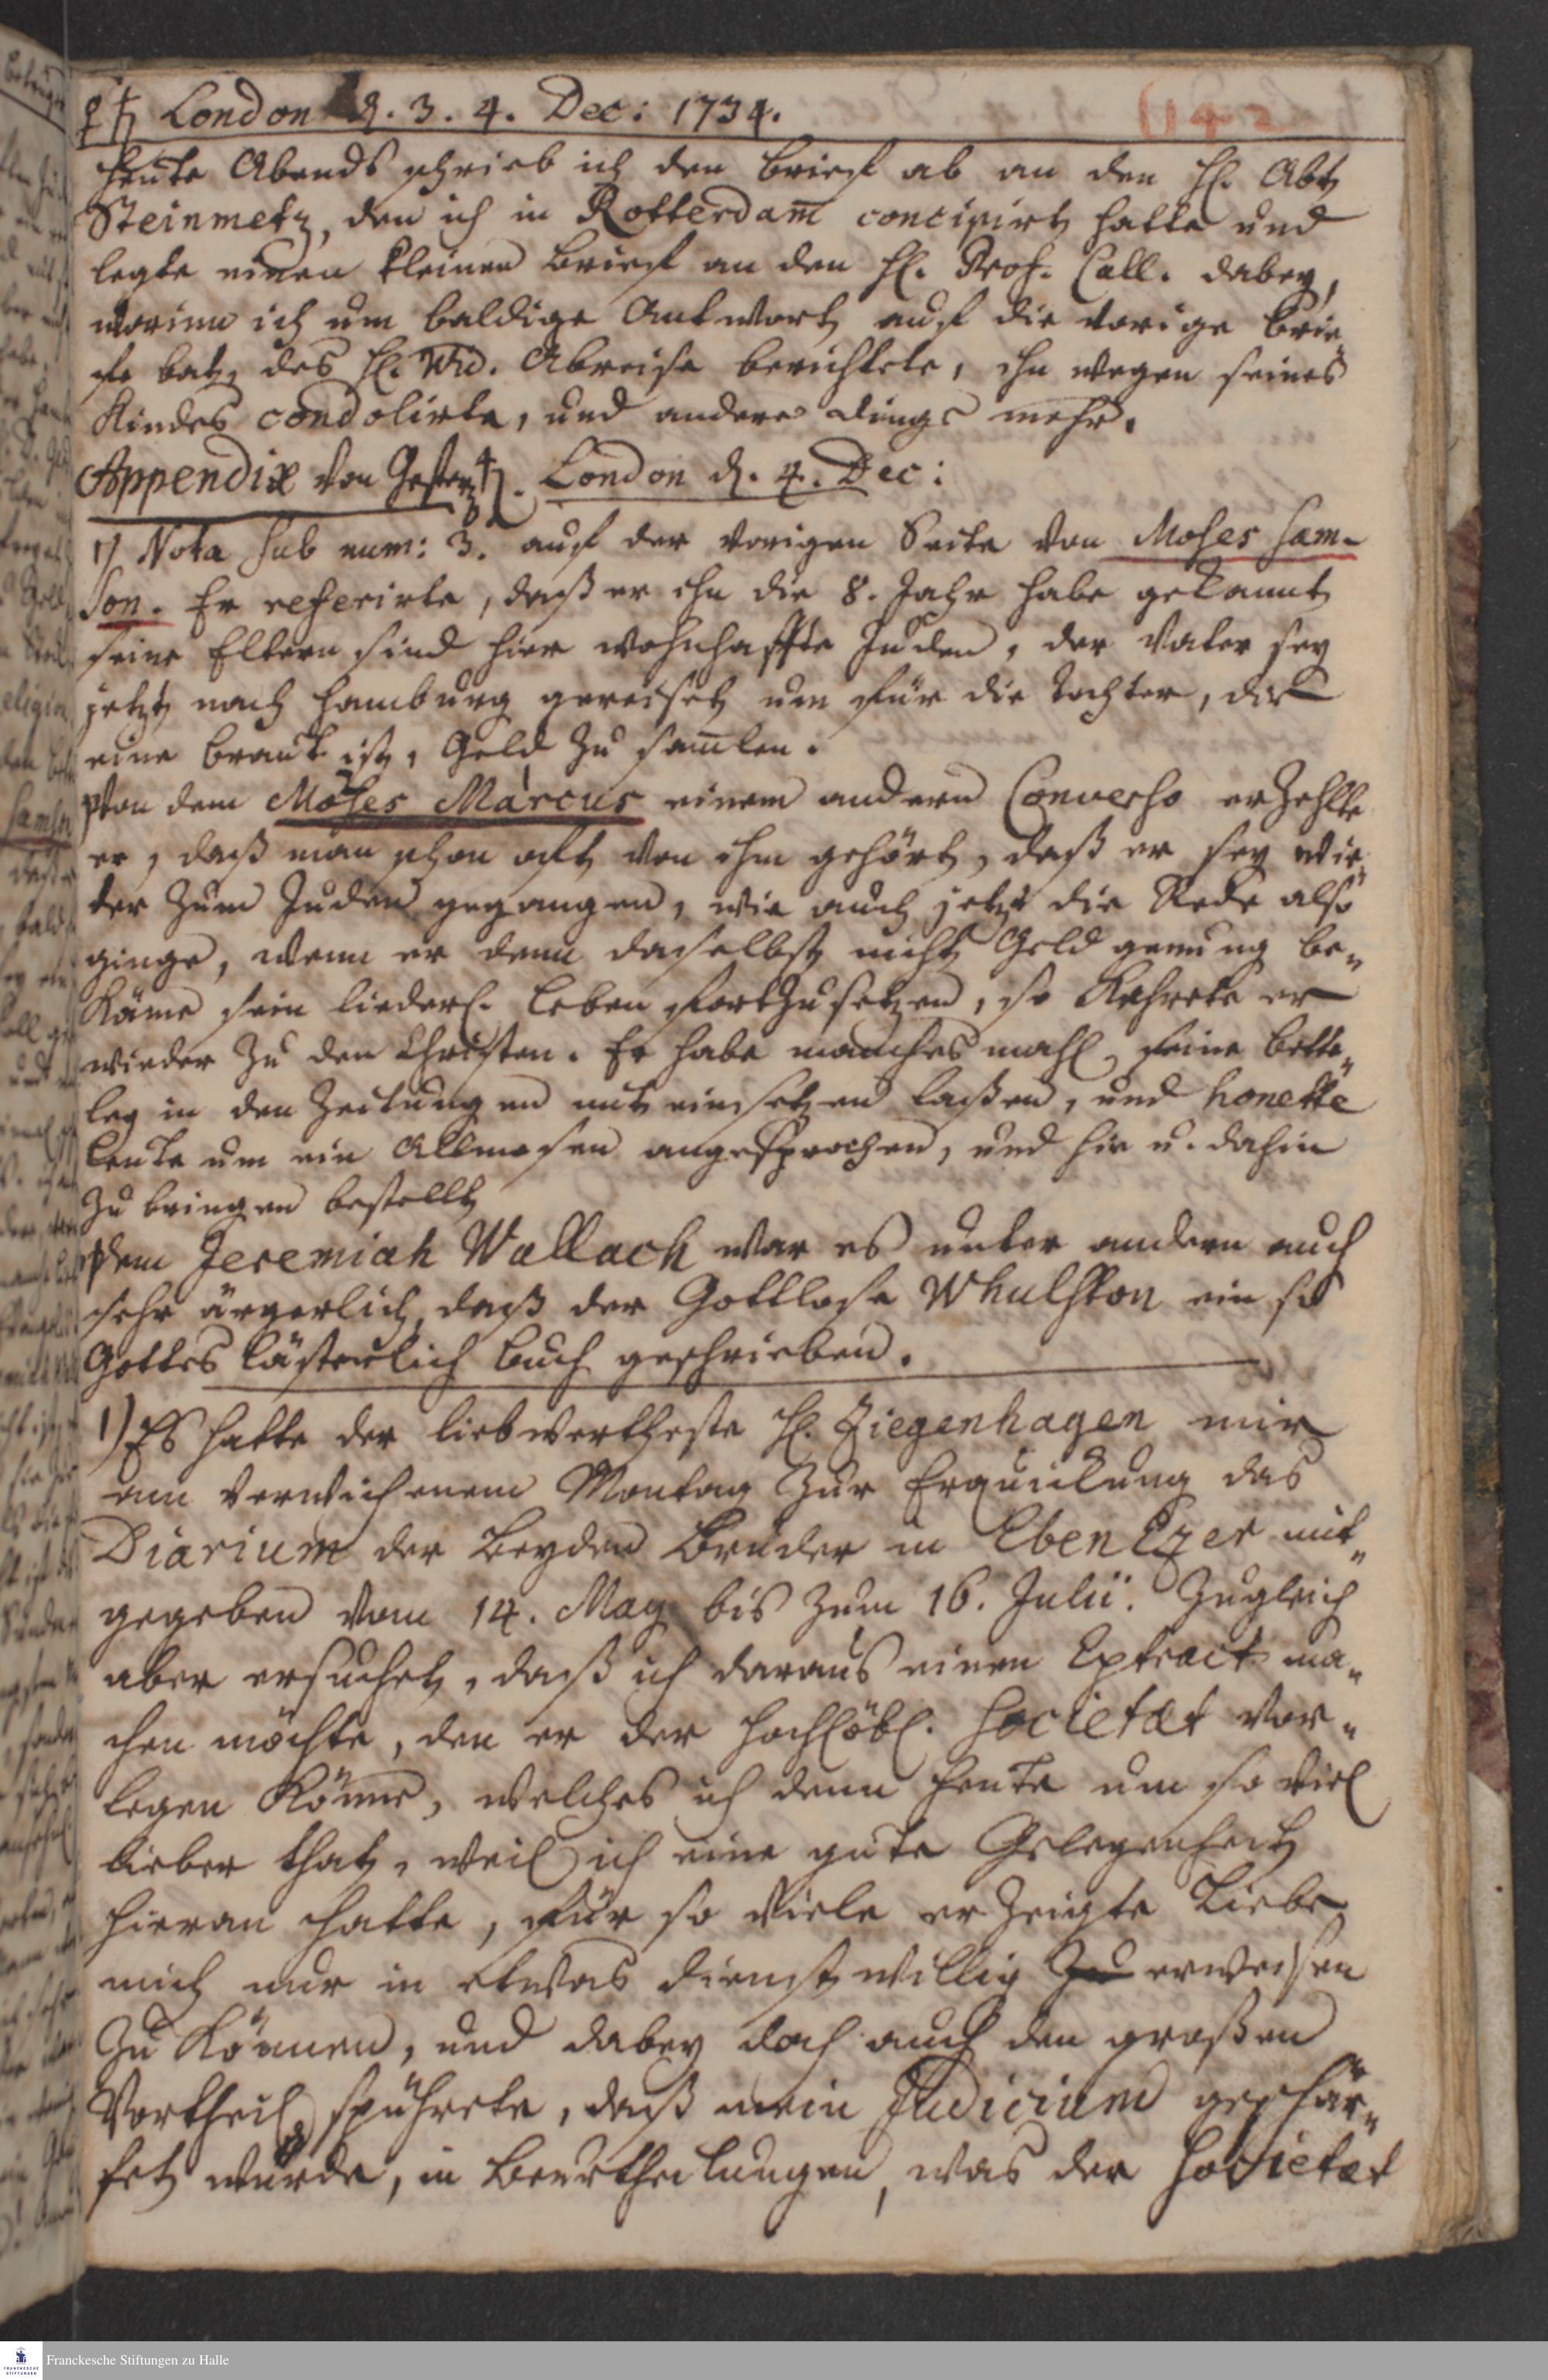 ♀ ♄ London d. 3. 4. Dec: 1734.
(142
Heute Abends schrieb ich den Brief ab an den H. Abt
Steinmetz, den ich in Rotterdam concipirt hatte und
legte einen kleinen Brief an den H. Prof. Call. dabey,
worinn ich um baldige Antwort auf die vorige Brie-
fe bat, des H. Wid. Abreise berichtete, ihn wegen seines
Kindes condolirte, und andere dings mehr.
Appendix von Gestern ♄. London d. 4. Dec:
1) Nota sub num: 3. auf der vorigen Seite von Moses Sam-
son. Er referirte, daß er ihn die 8. Jahr habe gekannt
seine Eltern sind hier wohnhaffte Juden, der Vater sey
jetzt nach Hamburg gereiset um für die Tochter, die
eine Braut ist, Geld zu samlen.
Von dem Moses Marcus einem andern Converso erzehlte
er, daß man schon oft von ihm gehört, daß er sey wie-
der zum Juden gegangen, wie auch jetzt die Rede also
ginge, wenn er denn daselbst nicht Geld genung be-
käme sein liederl. Leben fortzusetzen, so kehrete er
wieder zu den Christen. Er habe manches mahl seine Bette-
ley in den Zeitungen mit einsetzen laßen, und honette
Leute um ein Allmosen angesprochen, und hie u. dahin
zu bringen bestellt
Dem Jeremiah Wallach war es unter andern auch
sehr ärgerlich, daß der Gottlose Whulston ein so
Gottes lästerlich Buch geschrieben.
1) Es hatte der liebwertheste H. Ziegenhagen mir
am verwichenem Montag zur Erquickung das
Diarium der beyden Brüder in Eben Ezer mit-
gegeben vom 14. May bis zum 16. Julii. Zugleich
aber ersuchet, daß ich daraus einen Extract ma-
chen möchte, den er der hochlöbl. Societæt vor-
legen könne, welches ich denn heute um so viel
lieber that, weil ich eine gute Gelegenheit
hieran hatte, für so viele erzeigte Liebe
mich nur in etwas dienstwillig zu erweisen
zu können, und dabey doch auch den großen
Vortheil spührete, daß mein Judicium geschär-
fet wurde, in Beurtheilungen, was der Societæt
Franckesche Stiftungen zu Halle